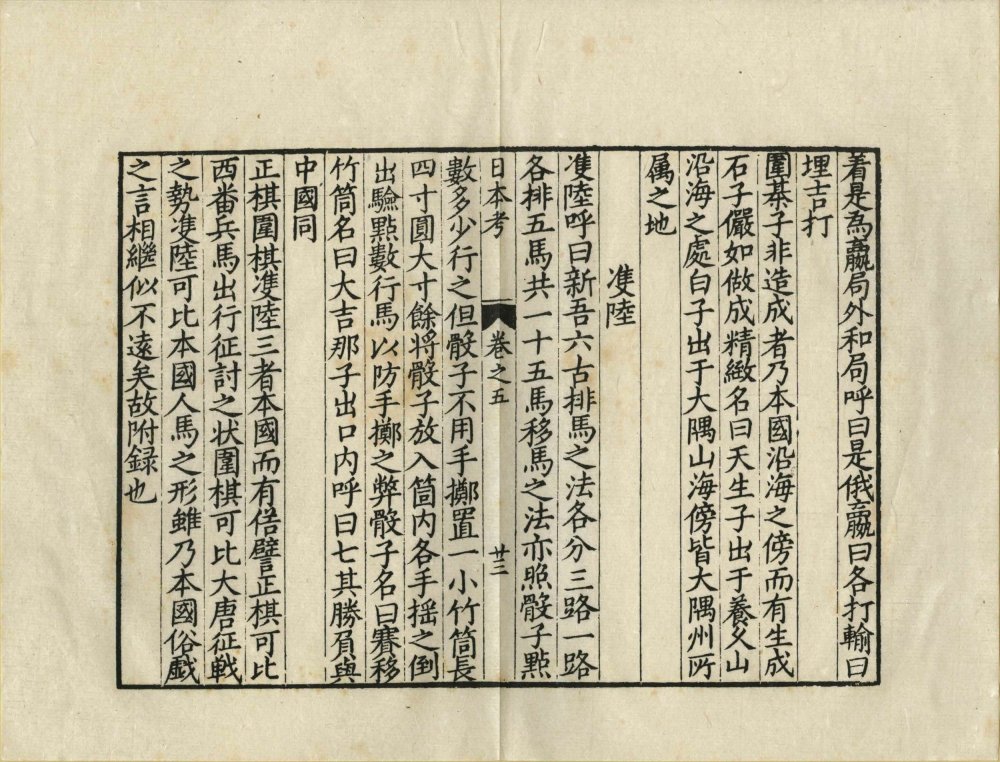 着是為贏局外和局呼曰是俄贏曰各打輸曰
埋吉打
圍棊子非造成者乃本國沿海之傍而有生成
石子儼如做成精緻名曰天生子出于養久山
沿海之處白子出于大隅山海傍皆大隅州所
属之地
䨇陸
䨇陸呼曰新吾六古排馬之法各分三路一路
各排五馬共一十五馬移馬之法亦照骰子點
日本考 卷之五 廿三
數多少行之但骰子不用手擲置一小竹筒長
四寸圓大寸餘将骰子放入筒内各手揺之倒
出驗點數行馬以防手擲之弊骰子名曰賽移
竹筒名曰大吉那子出口内呼曰七其勝負與
中國同
正棋圍棋䨇陸三者本國而有俻譬正棋可比
西番兵馬出行征討之状圍棋可比大唐征戰
之勢䨇陸可比本國人馬之形雖乃本國俗戲
之言相繼似不遠矣故附録也